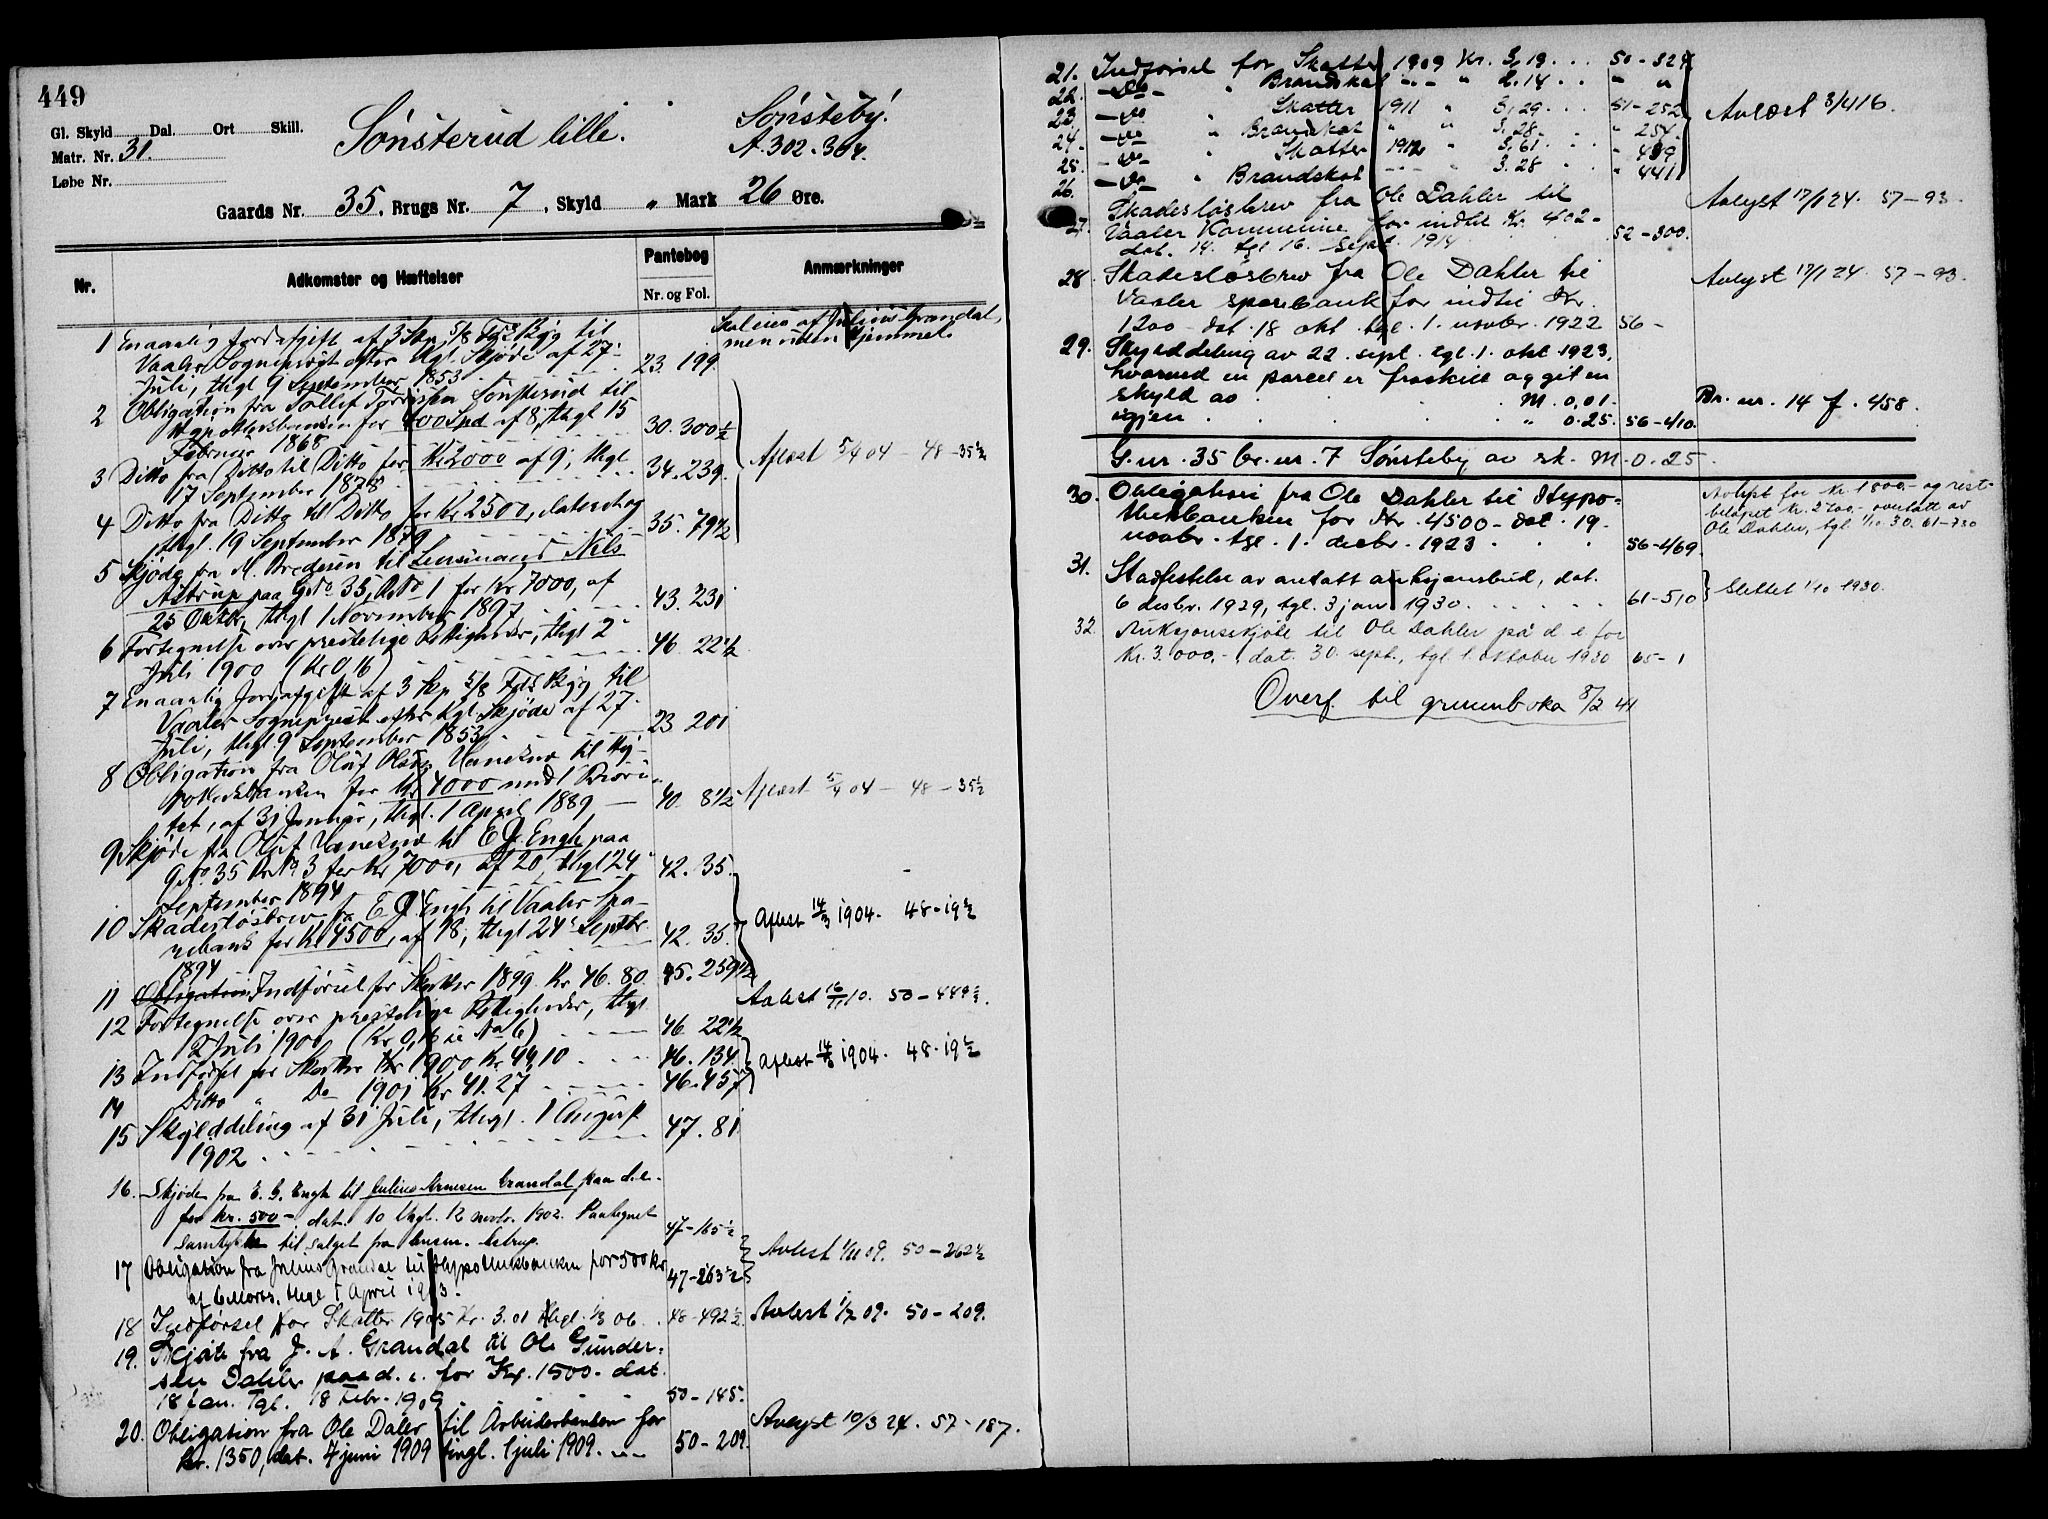 449
Gl. Skyld Dal. Ort Skill.
Matr. Nr. 31.
Løbe Nr.
Sønsterud lille.
Sønsteby.
A. 302-304.
Gaards Nr. 35, Brugs Nr. 7, Skyld " Mark 26 Øre.
Nr. Adkomster og Hæftelser Pantebog Nr. og Fol. Anmærkninger
1 En aarlig Jordafgift af 3 Skp 5/8 Fdk Byg til
Vaaler Sogneprest efter Kgl. Skjøde af 27
Juli, thgl 9 September 1853 23. 199
men uden Hjemmel
2 Obligation fra Tollef Sønsterud til
Hypothekbanken for 400 Spd af 8, thgl 15
Februar 1868 30. 300½
3 Ditto fra Ditto til Ditto for Kr 2000 af 9, thgl
17 September 1878 34. 239.
Aflæst 5/4 04 - 48-35½
4 Ditto fra Ditto til Ditto for Kr 2500, dateret og
thgl. 19 September 1879 35. 79½
5 Skjøde fra M. Bredesen til Lensmand Nils
Astrup paa GNo 35, BNo 1 for Kr 7000, af
25 Oktbr, thgl 1 November 1897 43. 231
6 Fortegnelse over prestelige Rettigheder, thgl 2
Juli 1900 (Kr 0,16) 46 22½
7 En aarlig Jordafgift af 3 Skp 5/8 Fdk Byg til
Vaaler Sogneprest efter Kgl. Skjøde af 27
Juli, thgl. 9 September 1853 23 201
8 Obligation fra Oluf Olsen Vanekud til Hy-
pothekbanken for Kr 4000 med 1 Priori-
tet, af 31 Januar, thgl. 1 April 1889 40. 8½
Aflæst 5/4 04 - 48-35½
9 Skjøde fra Oluf til E G. Engh paa
GNo. 35 BrNo 3 for Kr 7000, af 20, thgl 24
September 1894 42. 35.
10 Skadesløsbrev fra E G Engh til Vaaler Spa-
rebank for Kr 4500, af 18, thgl 24 Septbr
1894 42. 35.
Aflæst 14/3 1904. 48-19½
11 Obligation Indførsel for Skatter 1899 Kr 46.80. 45. 259½
12 Fortegnelse over prestelige Rettigheder, thgl
2 Juli 1900 (Kr 0,16 se No 6) 46 22½
Avlæst 16/11 10. 50-449½.
13 Indførsel for Skatter for 1900 Kr 44,10 46. 134
14 Ditto " Do 1901 Kr 41.27 46. 457
Aflæst 14/3 1904. 48-19½
15 Skylddeling af 31 Juli, thgl. 1 August
1902 47. 81
16. Skjøde fra E. G. Engh til Julius Arnesen Grandal paa d.e.
for kr. 500- dat. 10 thgl. 12 novbr. 1902. Paategnet
samtykke til salget fra lensm. Astrup. 47-165½
17 Obligation fra Julius Grandal til Hypothekbanken for 500 kr
af 6 Marts, thgl 1 April 1903. 47-263½
Avlæst 1/11 09. 50-262½
18 Indførsel for Skatter 1905 Kr. 3.01 thgl. 1/3 06. 48-492½
Avlæst 1/7 09. 50-209.
19. Skjøte fra J. A. Grandal til Ole Gunder-
sen Dahler paa d. e. for Kr. 1500- dat.
18 jan. Tgl. 18 Febr. 1909 50-185.
20. Obligation fra Ole Daler til Arbeiderbanken for
kr. 1350, dat. 7 juni 1909 tingl. 1 juli 1909. 50-209.
Avlyst 10/3 24. 57-187.
21. Indførsel for Skatter 1909 Kr. 3,19 50-324
22. -do- " Brandskat --- " 2.14 " "
23 -do " Skatter 1911 " 3,29 51-252
24. -do " Brandskat " " 3.28 " 254.
25. -do- " Skatter 1912 " 3,61 " 439
26. -do- " Brandskat --- " 3.28 " 441
Avlæst 3/4 16.
27. Skadesløsbrev fra Ole Dahler til
Vaaler Kommune for indtil Kr. 402-
dat. 14. tgl 16. Sept. 1914 52-300.
Avlyst 17/1 24. 57-93.
28 Skadesløsbrev fra Ole Dahler til
Vaaler sparebank for indtil Kr.
1200- dat. 18 okt. tgl. 1. novbr. 1922 56-
Avlyst 17/1 24. 57-93.
29. Skylddeling av 22. sept. tgl. 1. okt 1923,
hvorved en parcel er fraskilt og git en
skyld av M. 0,01.
igjen " 0.25. 56-410.
Br. nr. 14 f. 458.
G. nr. 35 br. nr. 7 Sønsteby av sk. M. 0.25.
30. Obligation fra Ole Dahler til Hypo-
thekbanken for Kr. 4500- dat. 19.
novbr. tgl. 1. decbr. 1923 56-469.
Avlyst for kr. 1800,- og rest-
beløpet kr. 2700,- overtatt av
Ole Dahler, tgl 1/10 30. 61-730
31. Stadfestelse av antatt auksjonsbud, dat.
6 desbr. 1929, tgl. 3 jan 1930. 61-510
Slettet 1/10 1930.
32. Auksjonsskjøte til Ole Dahler på d e for
kr. 3.000,-, dat. 30. sept., tgl. 1. oktober 1930 65-1
Overf. til grunnboka 8/2 41